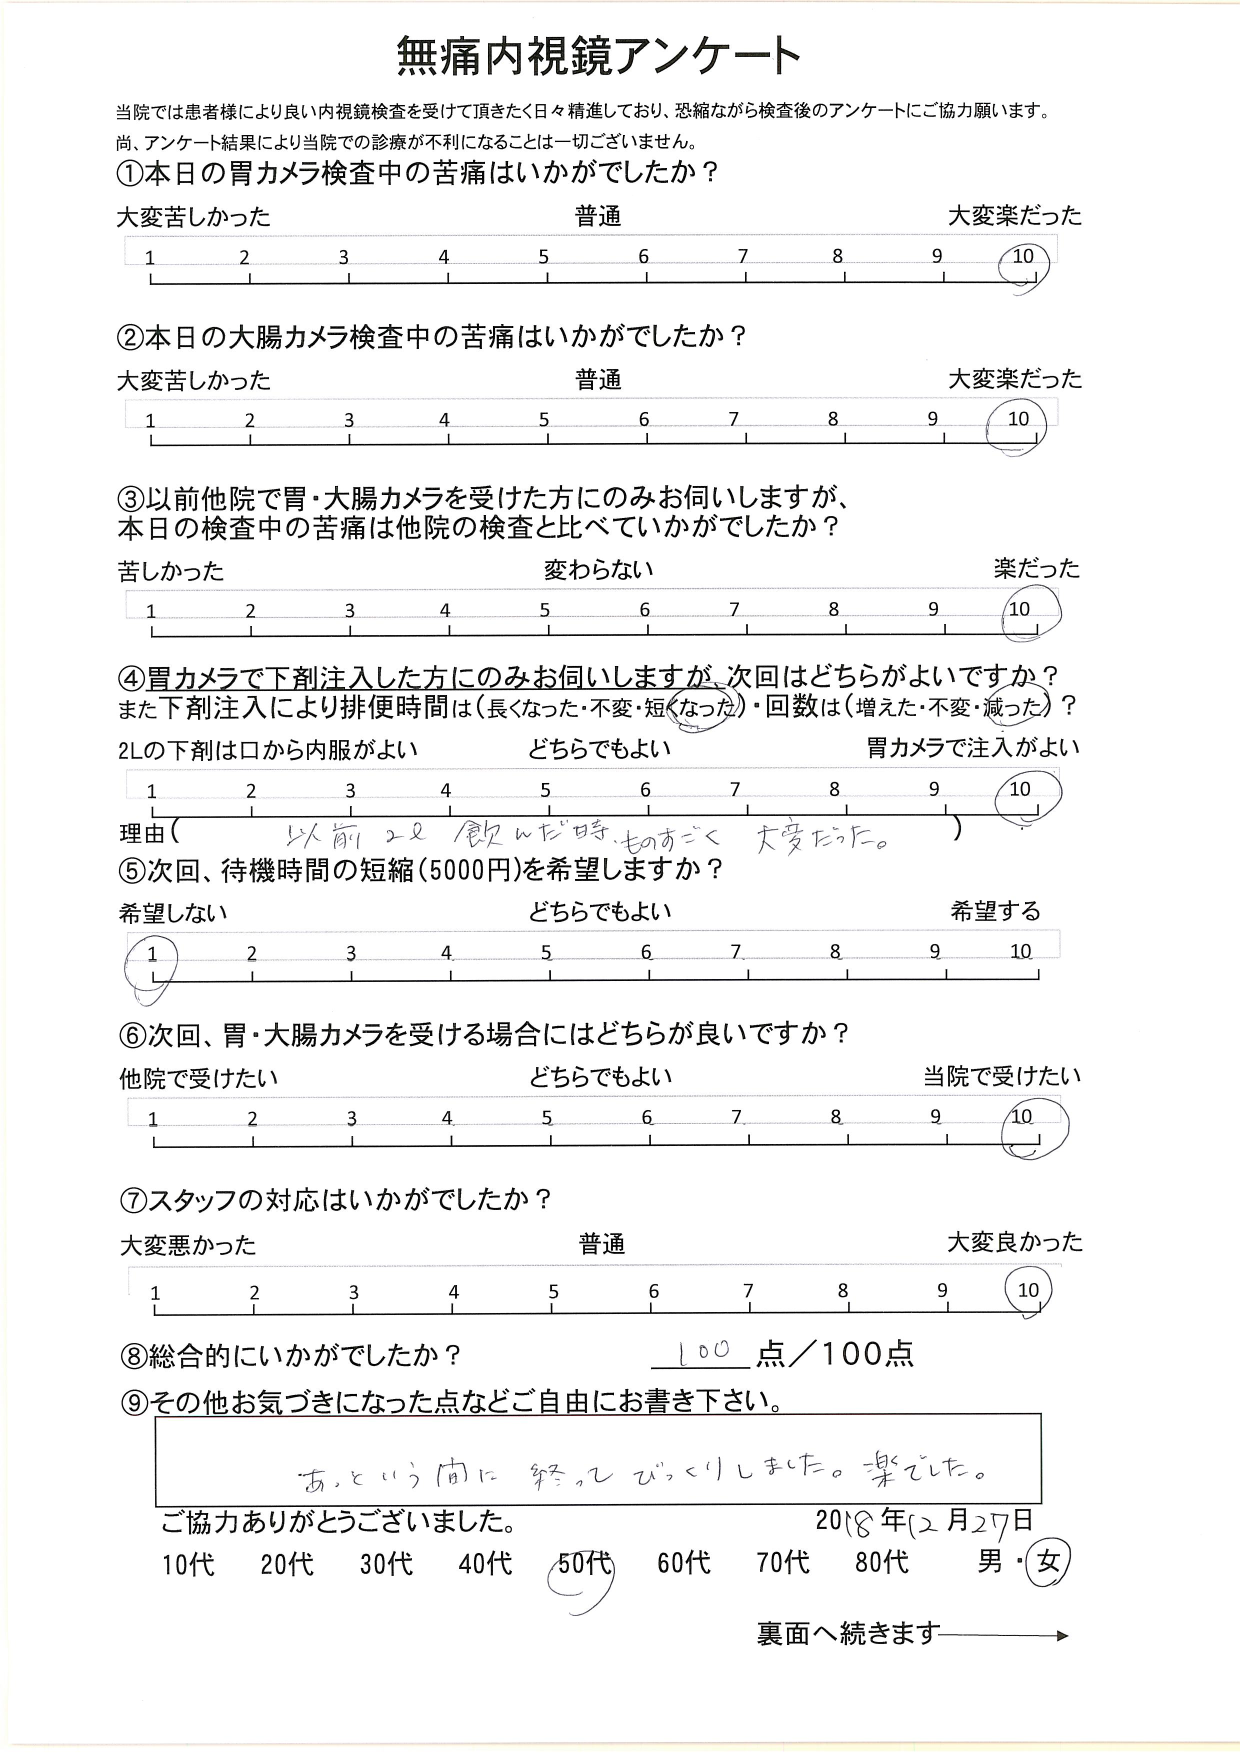 無痛内視鏡アンケート
当院では患者様により良い内視鏡検査を受けて頂きたく日々精進しており、恐縮ながら検査後のアンケートにご協力願います。
尚、アンケート結果により当院での診療が不利になることは一切ございません。
①本日の胃カメラ検査中の苦痛はいかがでしたか？
大変苦しかった 普通 大変楽だった
1 2 3 4 5 6 7 8 9 10
②本日の大腸カメラ検査中の苦痛はいかがでしたか？
大変苦しかった 普通 大変楽だった
1 2 3 4 5 6 7 8 9 10
③以前他院で胃・大腸カメラを受けた方にのみお伺いしますが、
本日の検査中の苦痛は他院の検査と比べていかがでしたか？
苦しかった 変わらない 楽だった
1 2 3 4 5 6 7 8 9 10
④胃カメラで下剤注入した方にのみお伺いしますが、次回はどちらがよいですか？
また下剤注入により排便時間は（長くなった・不変・短くなった）・回数は（増えた・不変・減った）？
2Lの下剤は口から内服がよい どちらでもよい 胃カメラで注入がよい
1 2 3 4 5 6 7 8 9 10
理由（ 以前 2ℓ 飲んだ時、ものすごく 大変だった。 ）
⑤次回、待機時間の短縮（5000円）を希望しますか？
希望しない どちらでもよい 希望する
1 2 3 4 5 6 7 8 9 10
⑥次回、胃・大腸カメラを受ける場合にはどちらが良いですか？
他院で受けたい どちらでもよい 当院で受けたい
1 2 3 4 5 6 7 8 9 10
⑦スタッフの対応はいかがでしたか？
大変悪かった 普通 大変良かった
1 2 3 4 5 6 7 8 9 10
⑧総合的にいかがでしたか？ 100 点／100点
⑨その他お気づきになった点などご自由にお書き下さい。
あっという間に 終って びっくりしました。楽でした。
ご協力ありがとうございました。 2018年12月27日
10代 20代 30代 40代 50代 60代 70代 80代 男・女
裏面へ続きます